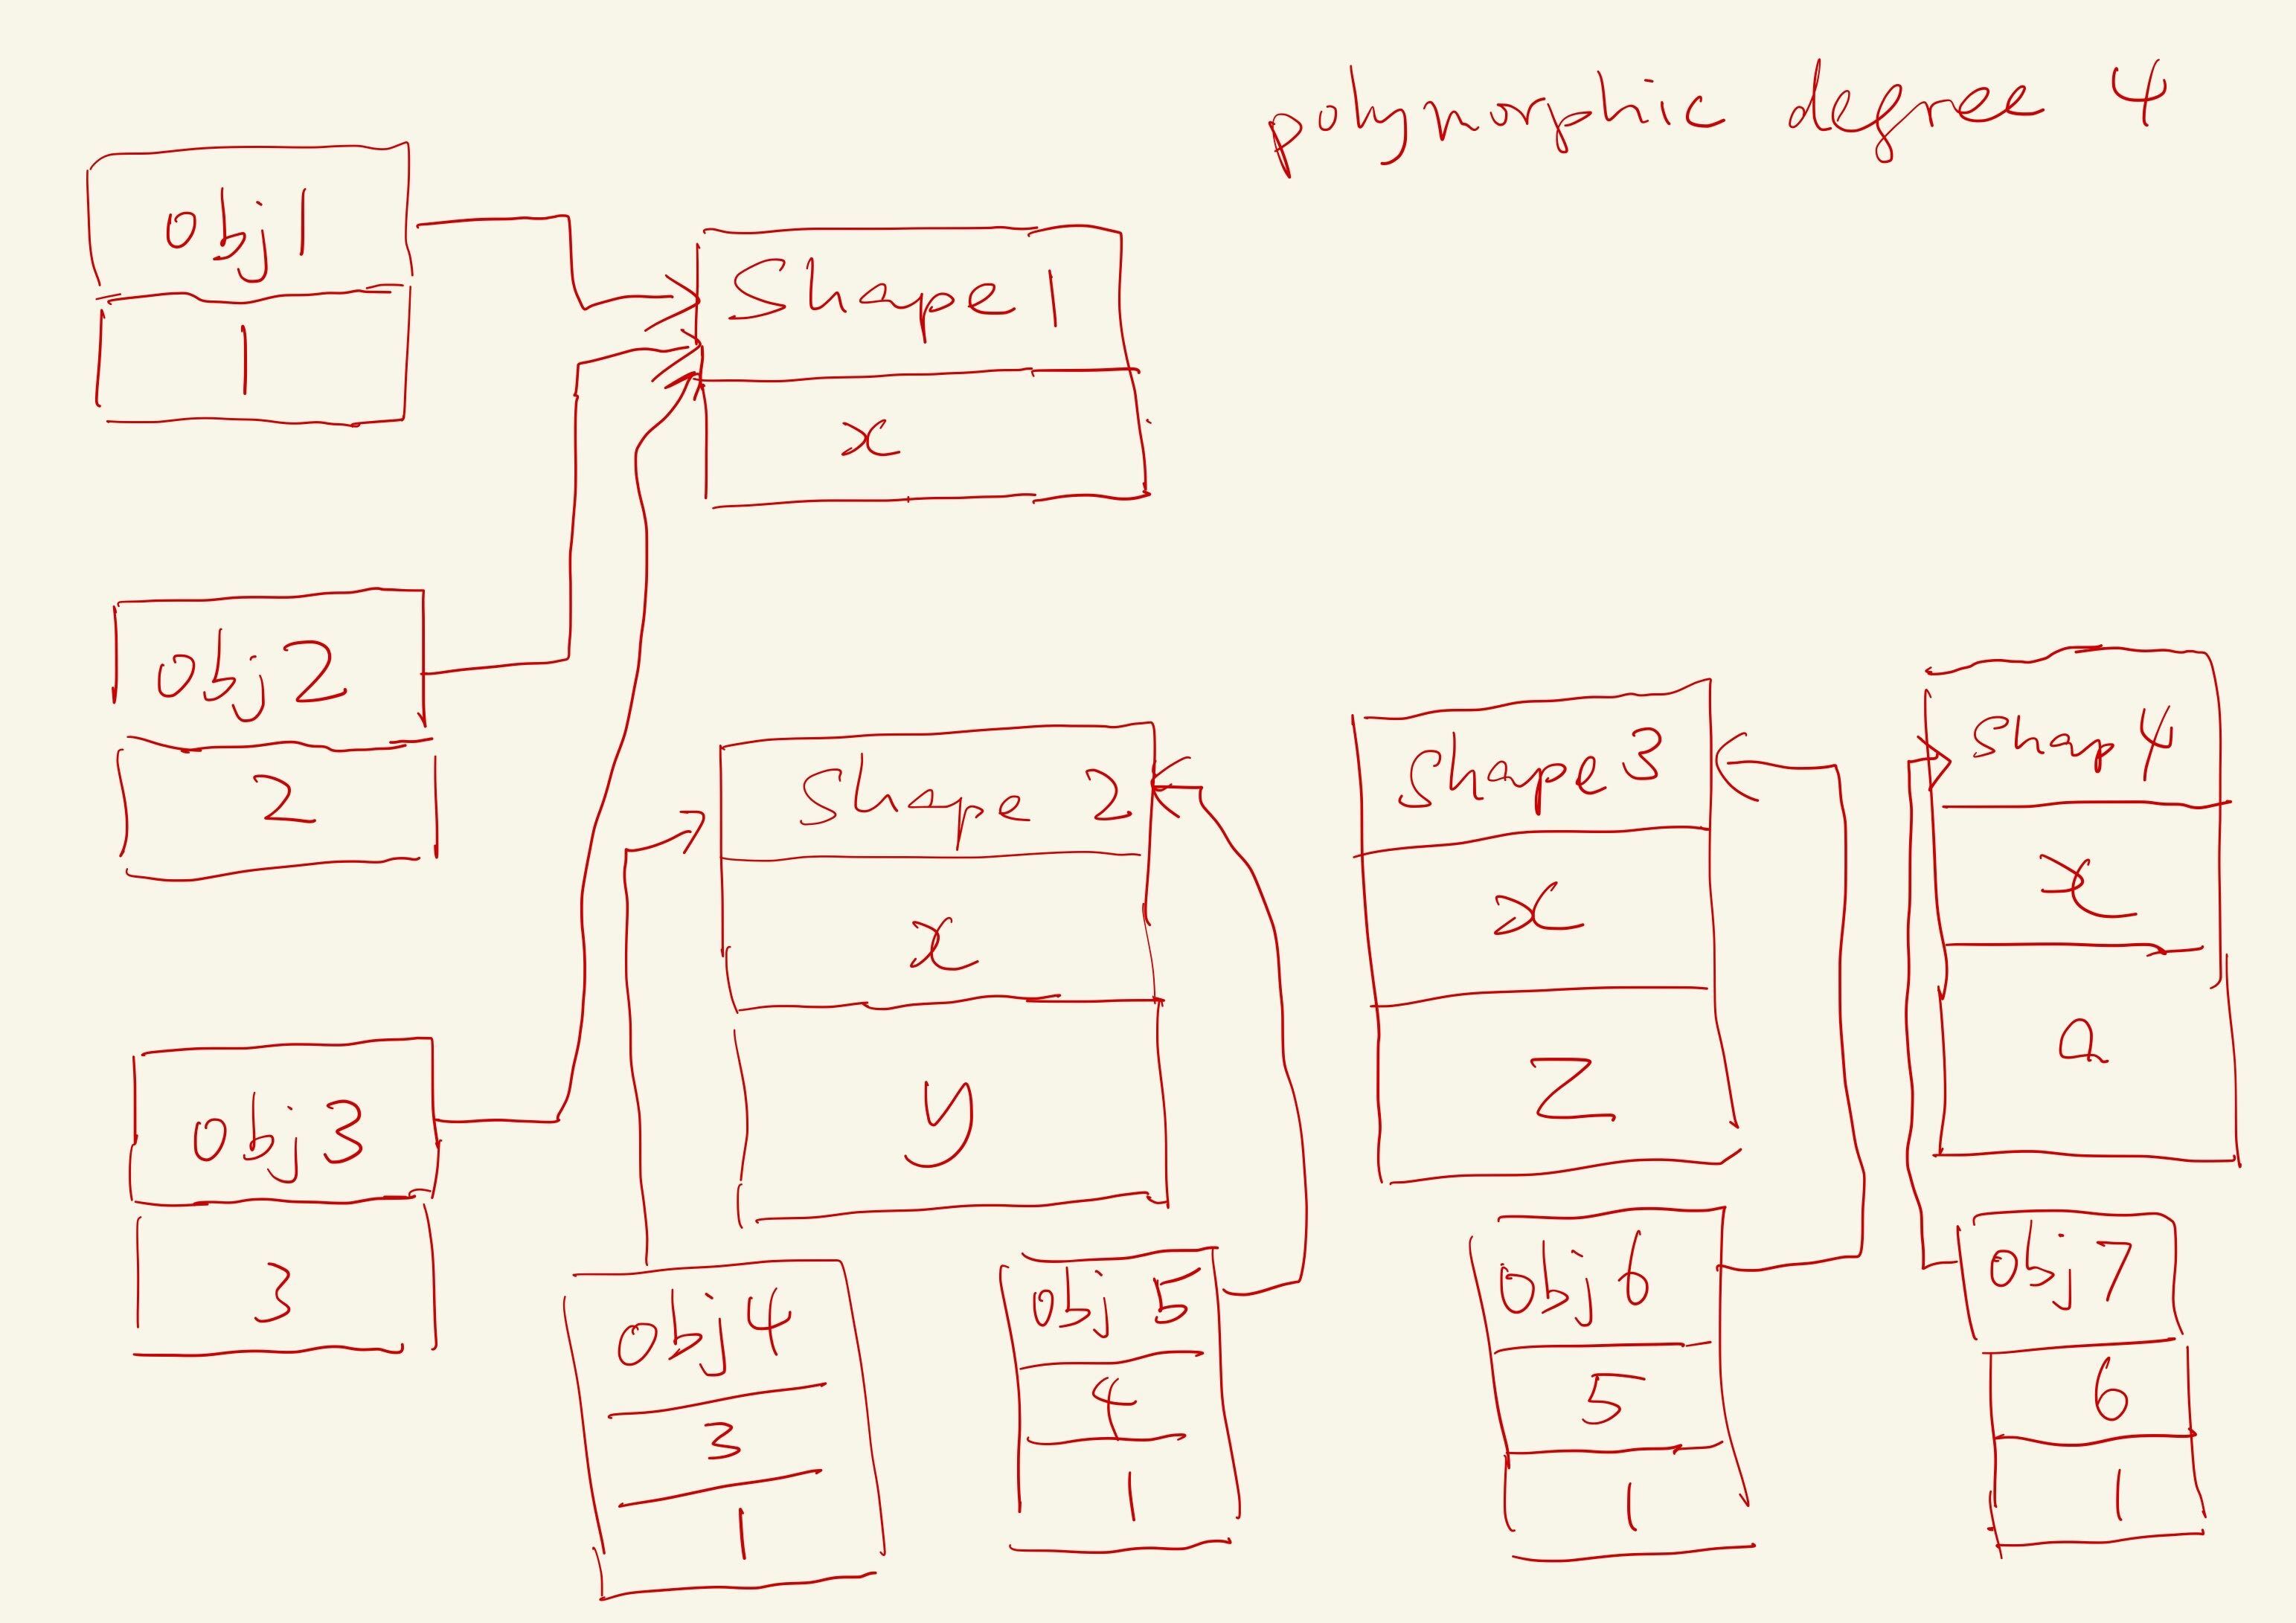 polymorphic degree 4
obj1
1
Shape 1
x
obj2
2
Shape 2
x
y
Shape3
x
z
Shap 4
x
a
obj3
3
obj4
3
1
obj 5
4
1
obj6
5
1
obj7
6
1